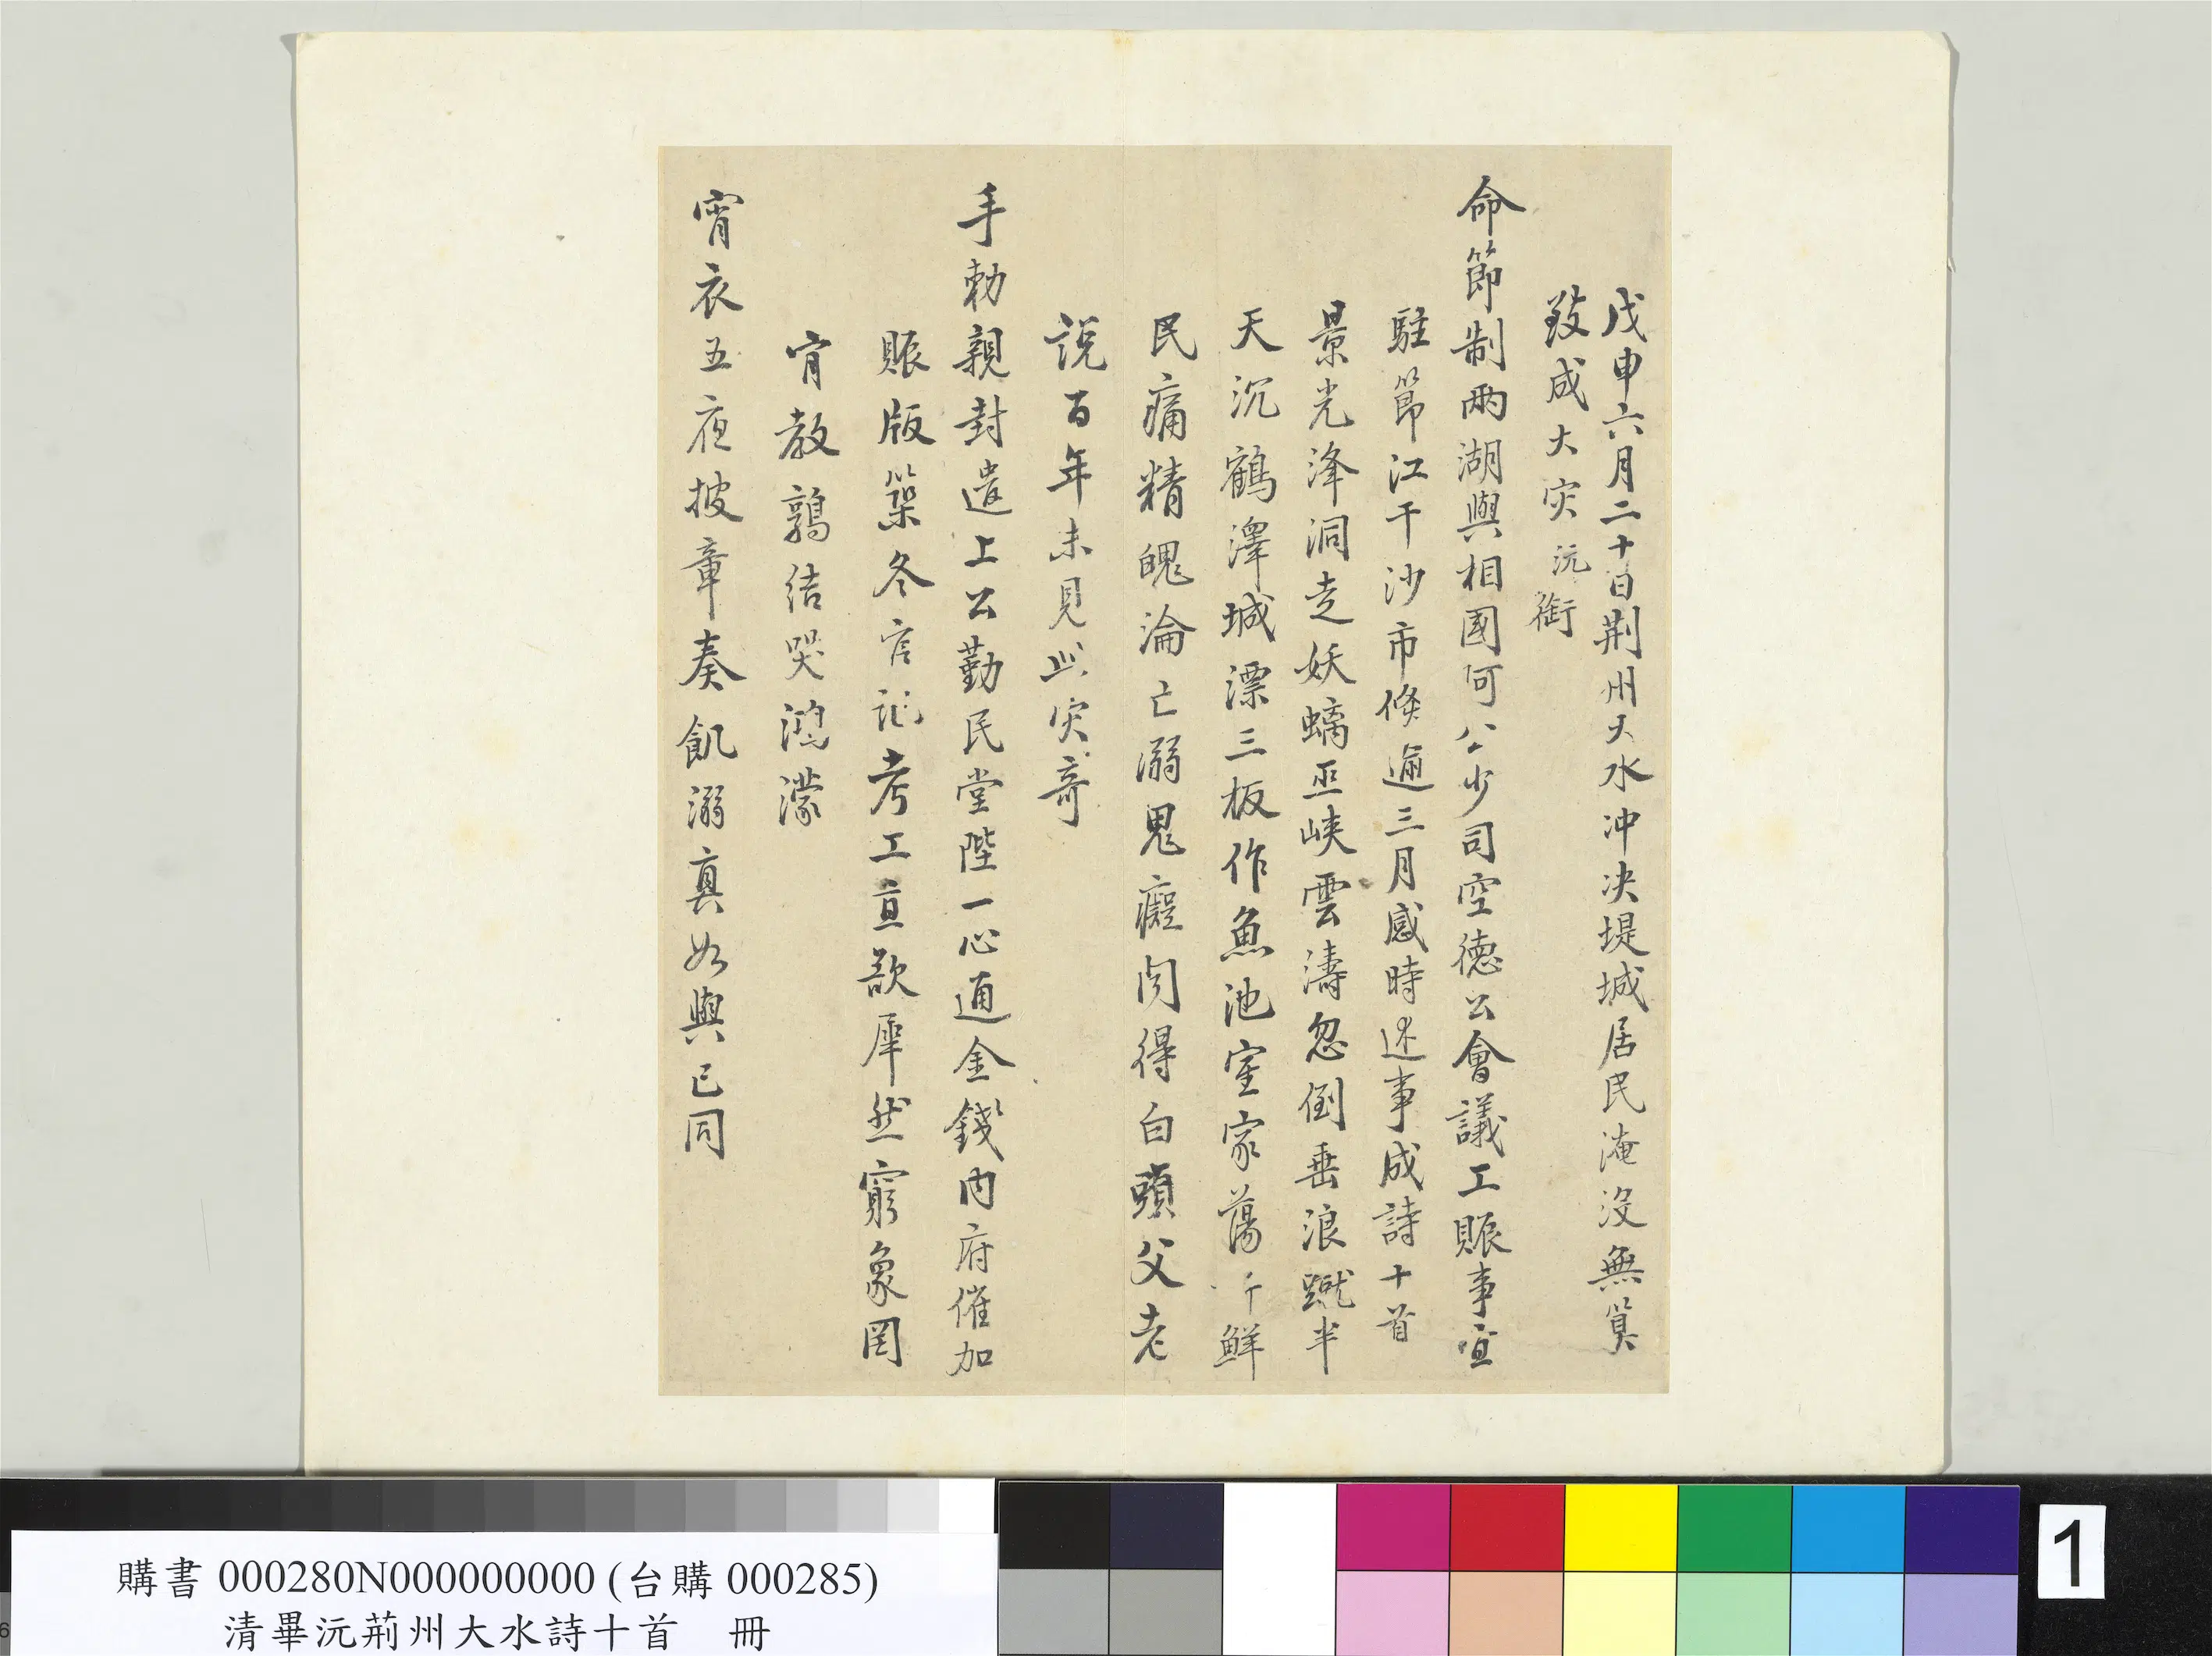 戊申六月二十日荆州大水冲决堤城居民淹沒無筭
致成大灾沅銜
命節制兩湖與相國阿公少司空德公會議工賑事宜
駐節江干沙市倏逾三月感時述事成詩十首
景光洚洞走妖螭巫峽雲濤忽倒垂浪蹴半
天沉鶴澤城漂三板作魚池室家蕩千鮮
民痛精魄淪亡溺鬼癡閔得白頭父老
說百年未見此灾奇
手勅親封遣上公勤民堂陛一心通金錢內府催加
賑版築冬官記考工直欲犀然窮象罔
肯教鶉結哭鴻濛
宵衣五夜披章奏飢溺真如與已同
購書 000280N000000000 (台購 000285)
清畢沅荊州大水詩十首 冊
1